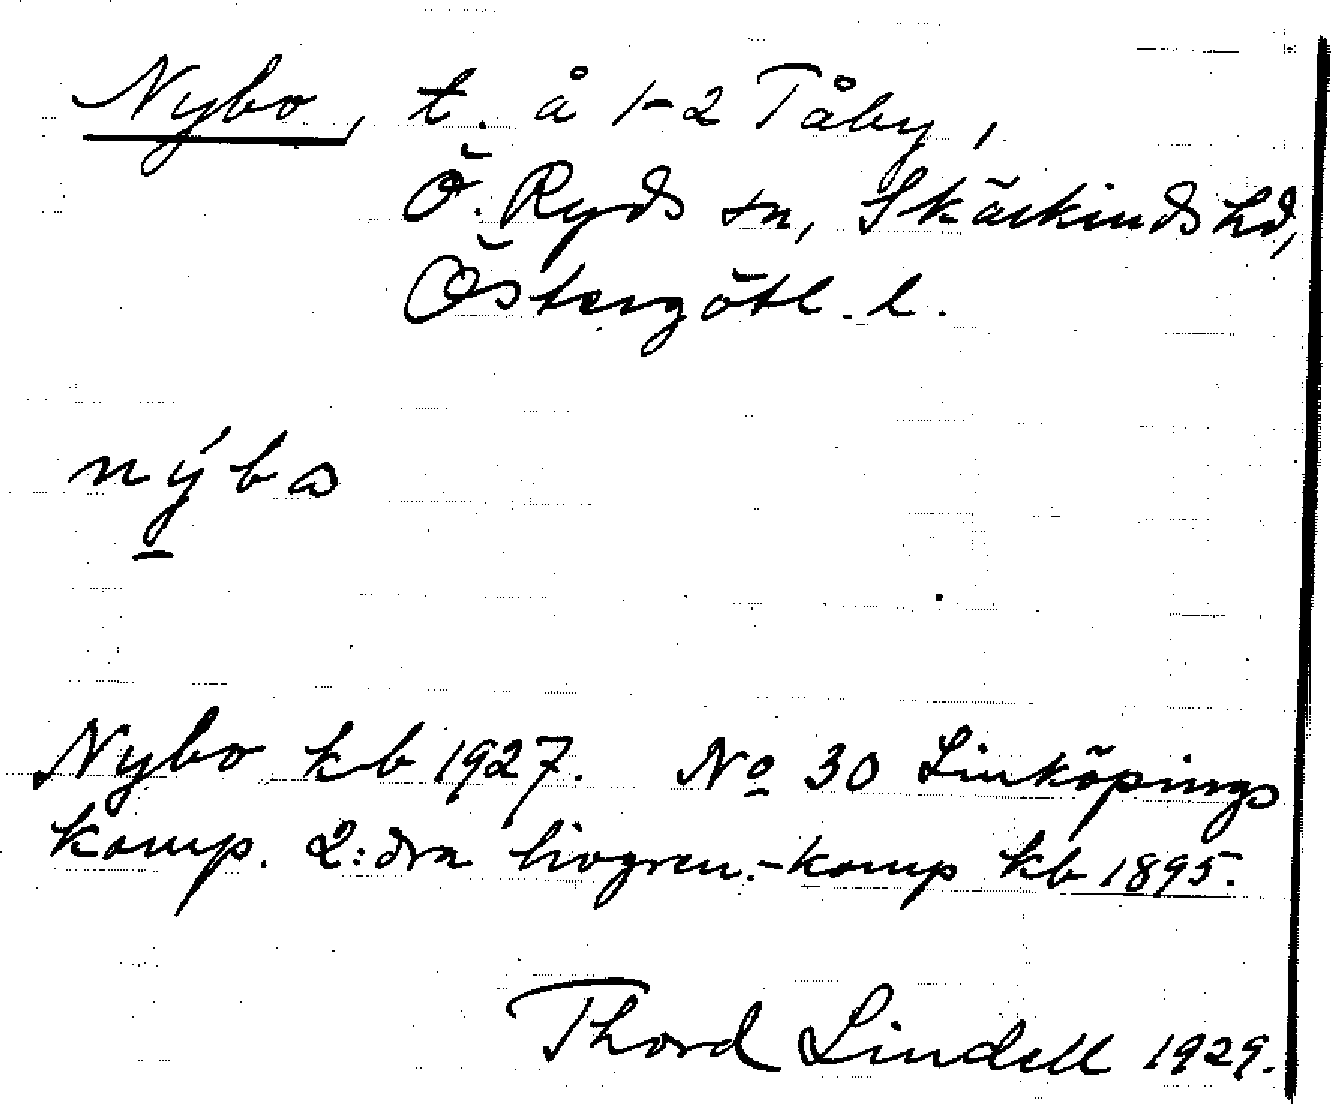 Nybo, t. å 1-2 Tåby,
Ö. Ryds sn, Skärkinds hd,
Östergötl. l.
nýbo
Nybo kb 1927. No 30 Linköpings
komp. 2:dra livgren.-komp kb 1895.
Thord Lindell 1929.